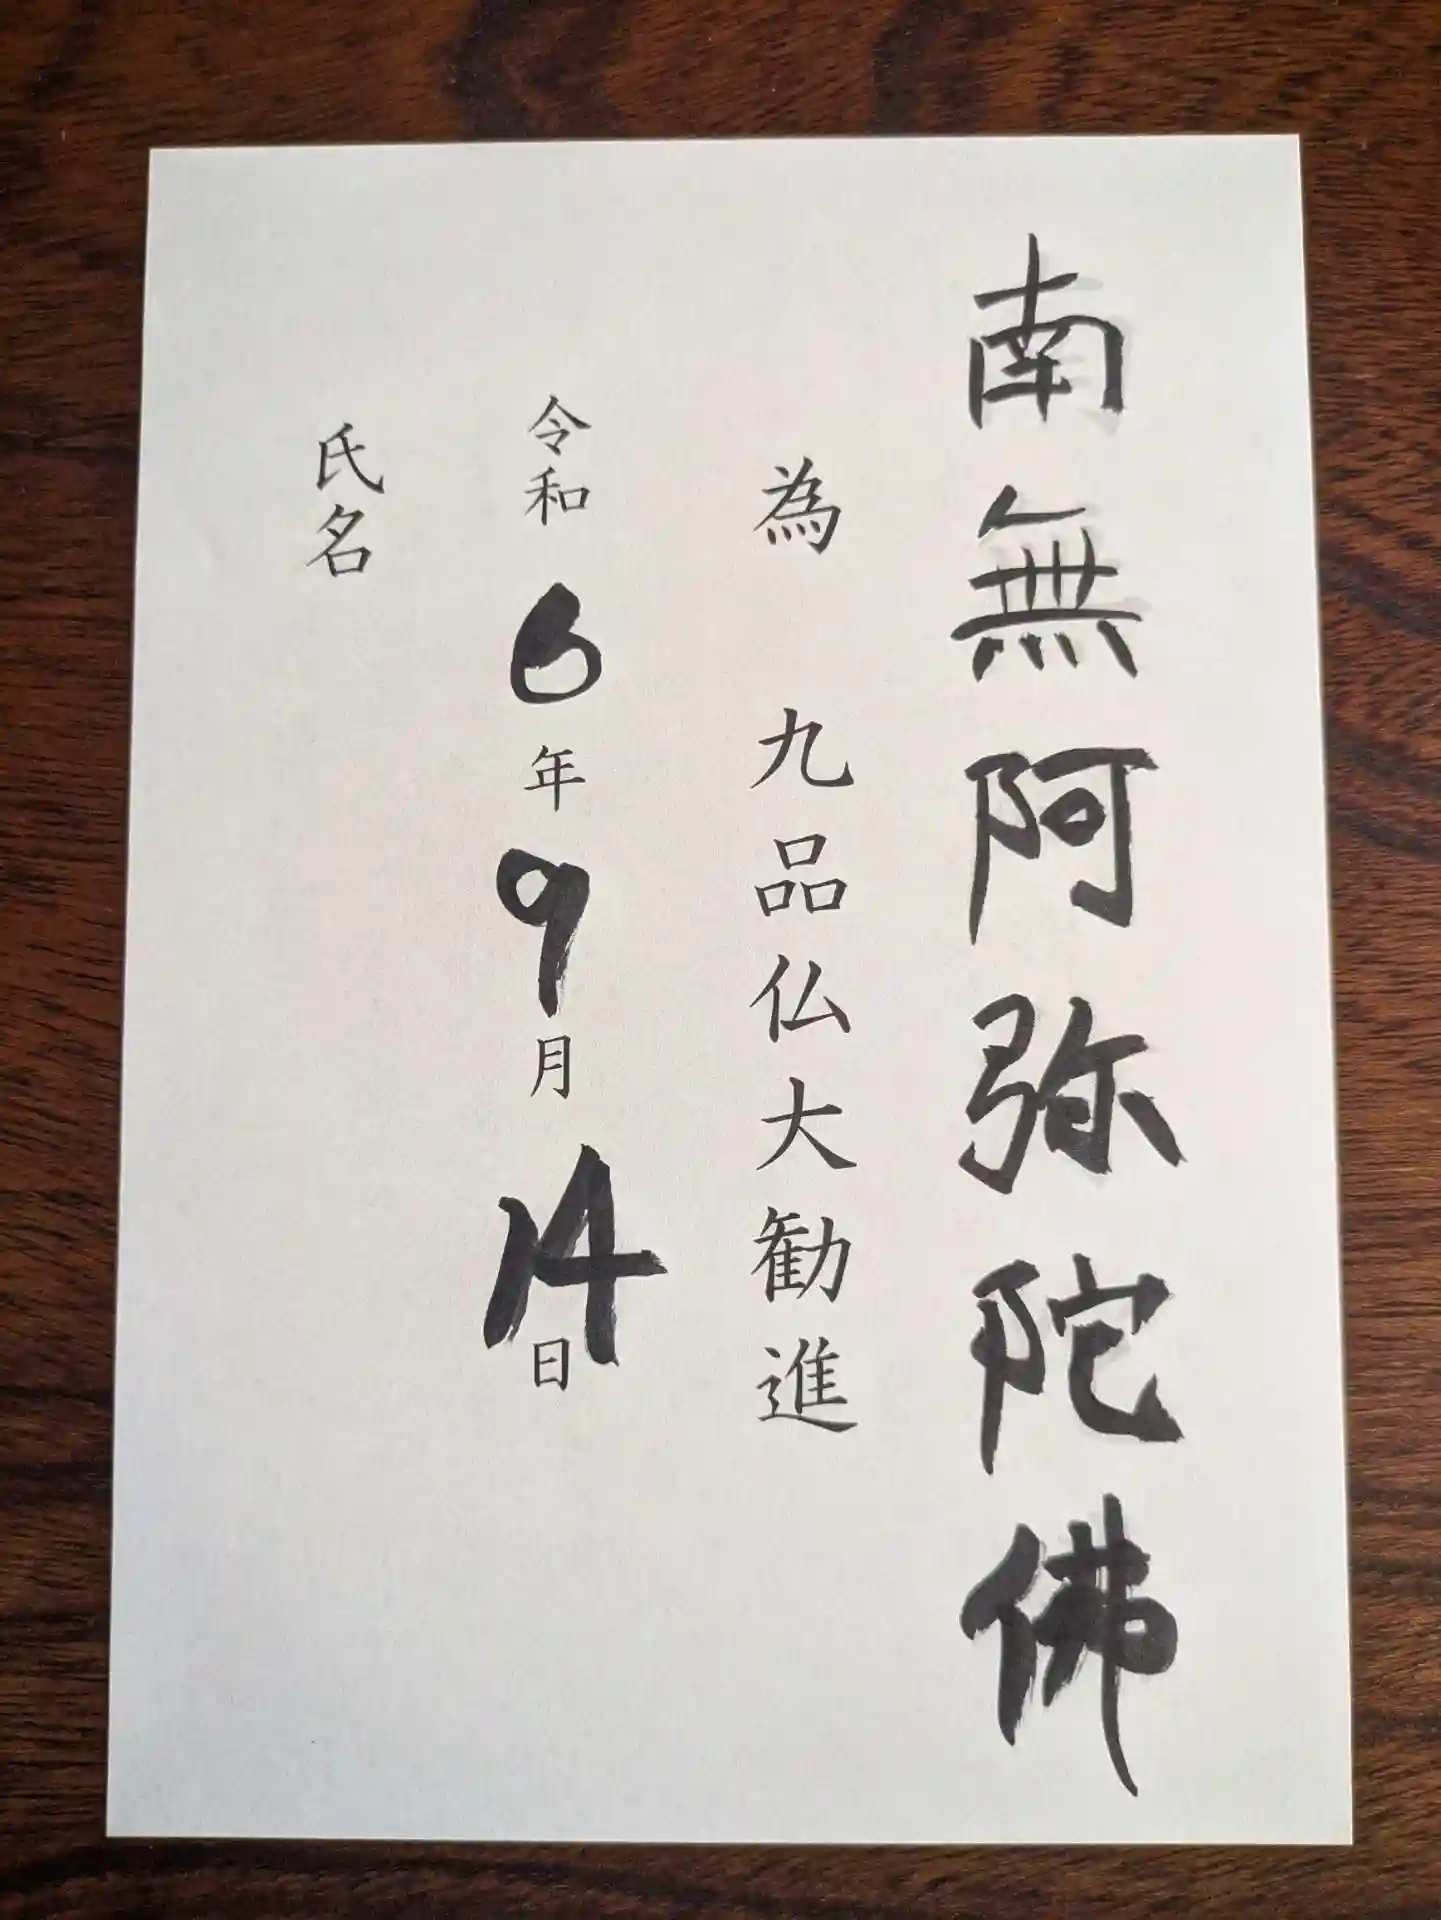 南無阿弥陀佛
為 九品仏大勧進
令和6年9月14日
氏名